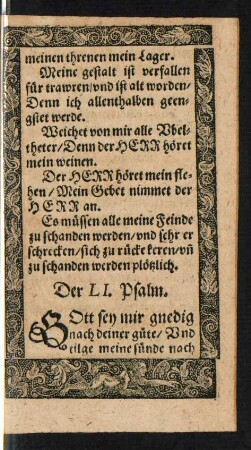 meinen threnen mein Lager.
Meine gestalt ist verfallen
für trawren/vnd ist alt worden/
Denn ich allenthalben geen-
gstet werde.
Weichet von mir alle Vbel-
theter/Denn der HERR höret
mein weinen.
Der HERR höret mein fle-
hen/Mein Gebet nimmet der
HERR an.
Es müssen alle meine Feinde
zu schanden werden/vnd sehr er
schrecken/sich zu rücke keren/vñ
zu schanden werden plötzlich.
Der LI. Psalm.
GOtt sey mir gnedig
nach deiner güte/Vnd
tilge meine sünde nach